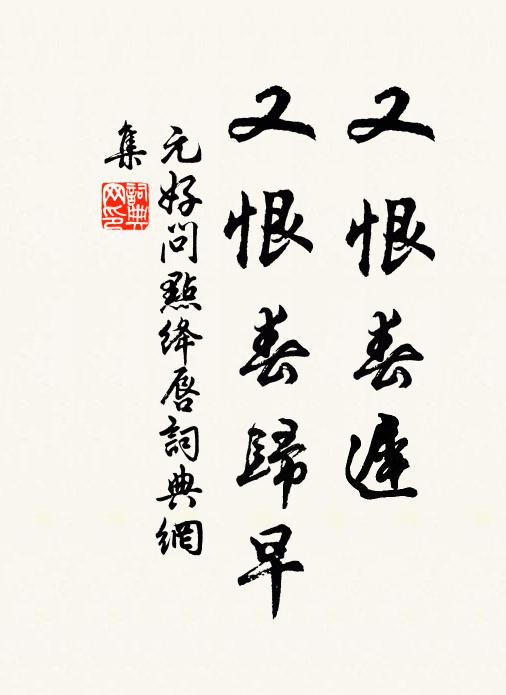 又恨春遲
又恨春歸早
元好問點絳唇詞典網
集
詞典網印